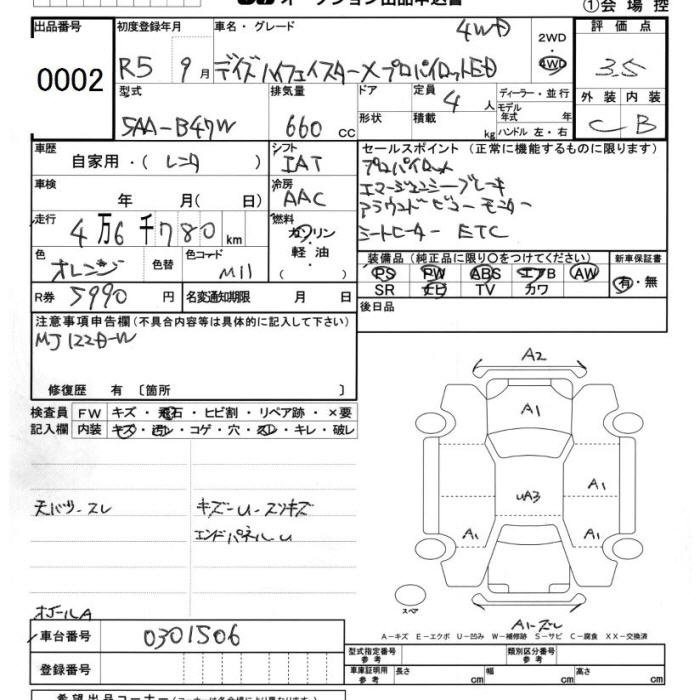 オークション出品申込書 ①会場控
出品番号 0002
初度登録年月 R5 9月
車名・グレード 4WD
デイズ ハイウェイスターXプロパイロットED
2WD・4WD
評価点 3.5
外装 C 内装 B
型式 5AA-B47W
排気量 660 cc
ドア 形状
定員 4 人
積載 kg
ディーラー・並行
モデル年式 年
ハンドル 左・右
車歴 自家用・( レンタ )
シフト IAT
セールスポイント (正常に機能するものに限ります)
プロパイロット
エマージェンシーブレーキ
アラウンドビューモニター
シートヒーター ETC
車検 年 月( 日)
冷房 AAC
走行 4万6千780km
燃料 ガソリン・軽油・( )
色 オレンジ
色替
色コード M11
装備品 (純正品に限り○をつけてください)
PS PW ABS エアB AW
SR ナビ TV カワ
新車保証書 有・無
R券 5990 円
名変通知期限 月 日
後日品
注意事項申告欄 (不具合内容等は具体的に記入して下さい)
修復歴 有 〔箇所 〕
検査員記入欄
FW キズ・飛石・ヒビ割・リペア跡・×要
内装 キズ・汚レ・コゲ・穴・スレ・キレ・破レ
天バリ スレ
キズーU・スリキズ
エンドパネルU
A2
A1
UA3
A1
A1
A1
スペア
A1・ズレ
A-キズ E-エクボ U-凹み W-補修跡 S-サビ C-腐食 XX-交換済
車台番号 0301506
登録番号
型式指定番号 参考
類別区分番号 参考
車庫証明用 参考 長さ cm 幅 cm 高さ cm
希望出品コーナー